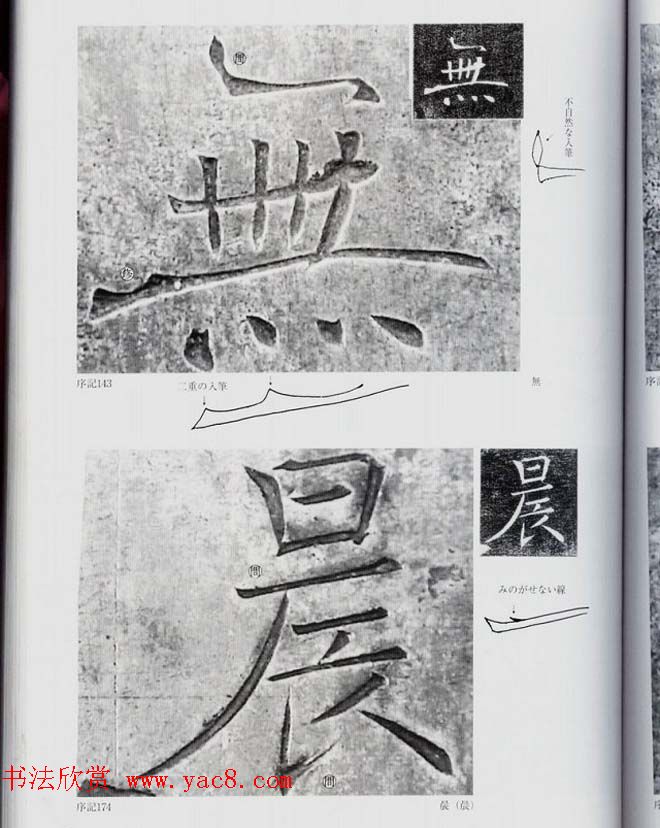 無
無
不自然な入筆
序記143
二重の入筆
無
晨
晨
みのがせない線
书法欣赏 www.yac8.com
序記174
晨（晨）